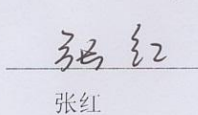 张红
张红